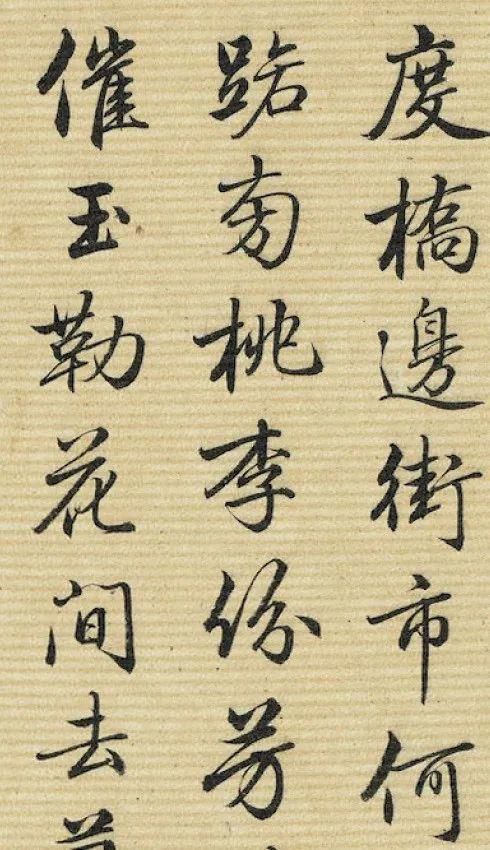 度橋邊街市何
踞旁桃李份芳
催玉勒花間去